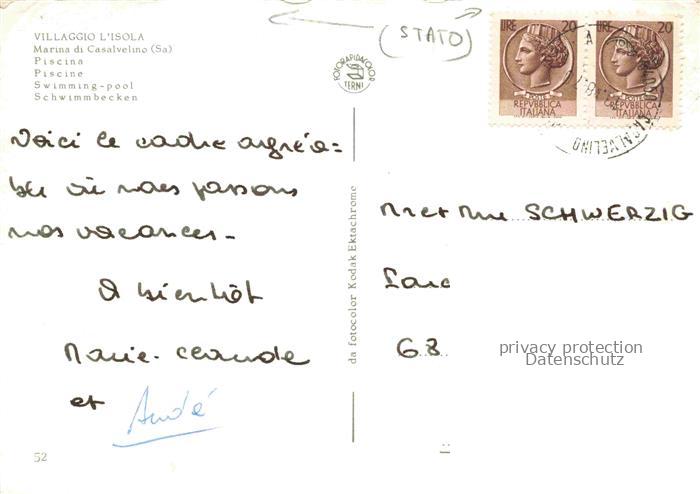 VILLAGGIO L'ISOLA
Marina di Casalvelino (Sa)
Piscina
Piscine
Swimming-pool
Schwimmbecken
(STATO)
FOTORAPIDACOLOR
TERNI
LIRE 20
POSTE
REPVBBLICA
ITALIANA
LIRE 20
POSTE
REPVBBLICA
ITALIANA
CASALVELINO
Voici le cadre agréa=
ble où nous passons
nos vacances-
A bientôt
Marie-Claude
et André
52
da fotocolor Kodak Ektachrome
M et Mme SCHWERZIG
68
privacy protection
Datenschutz